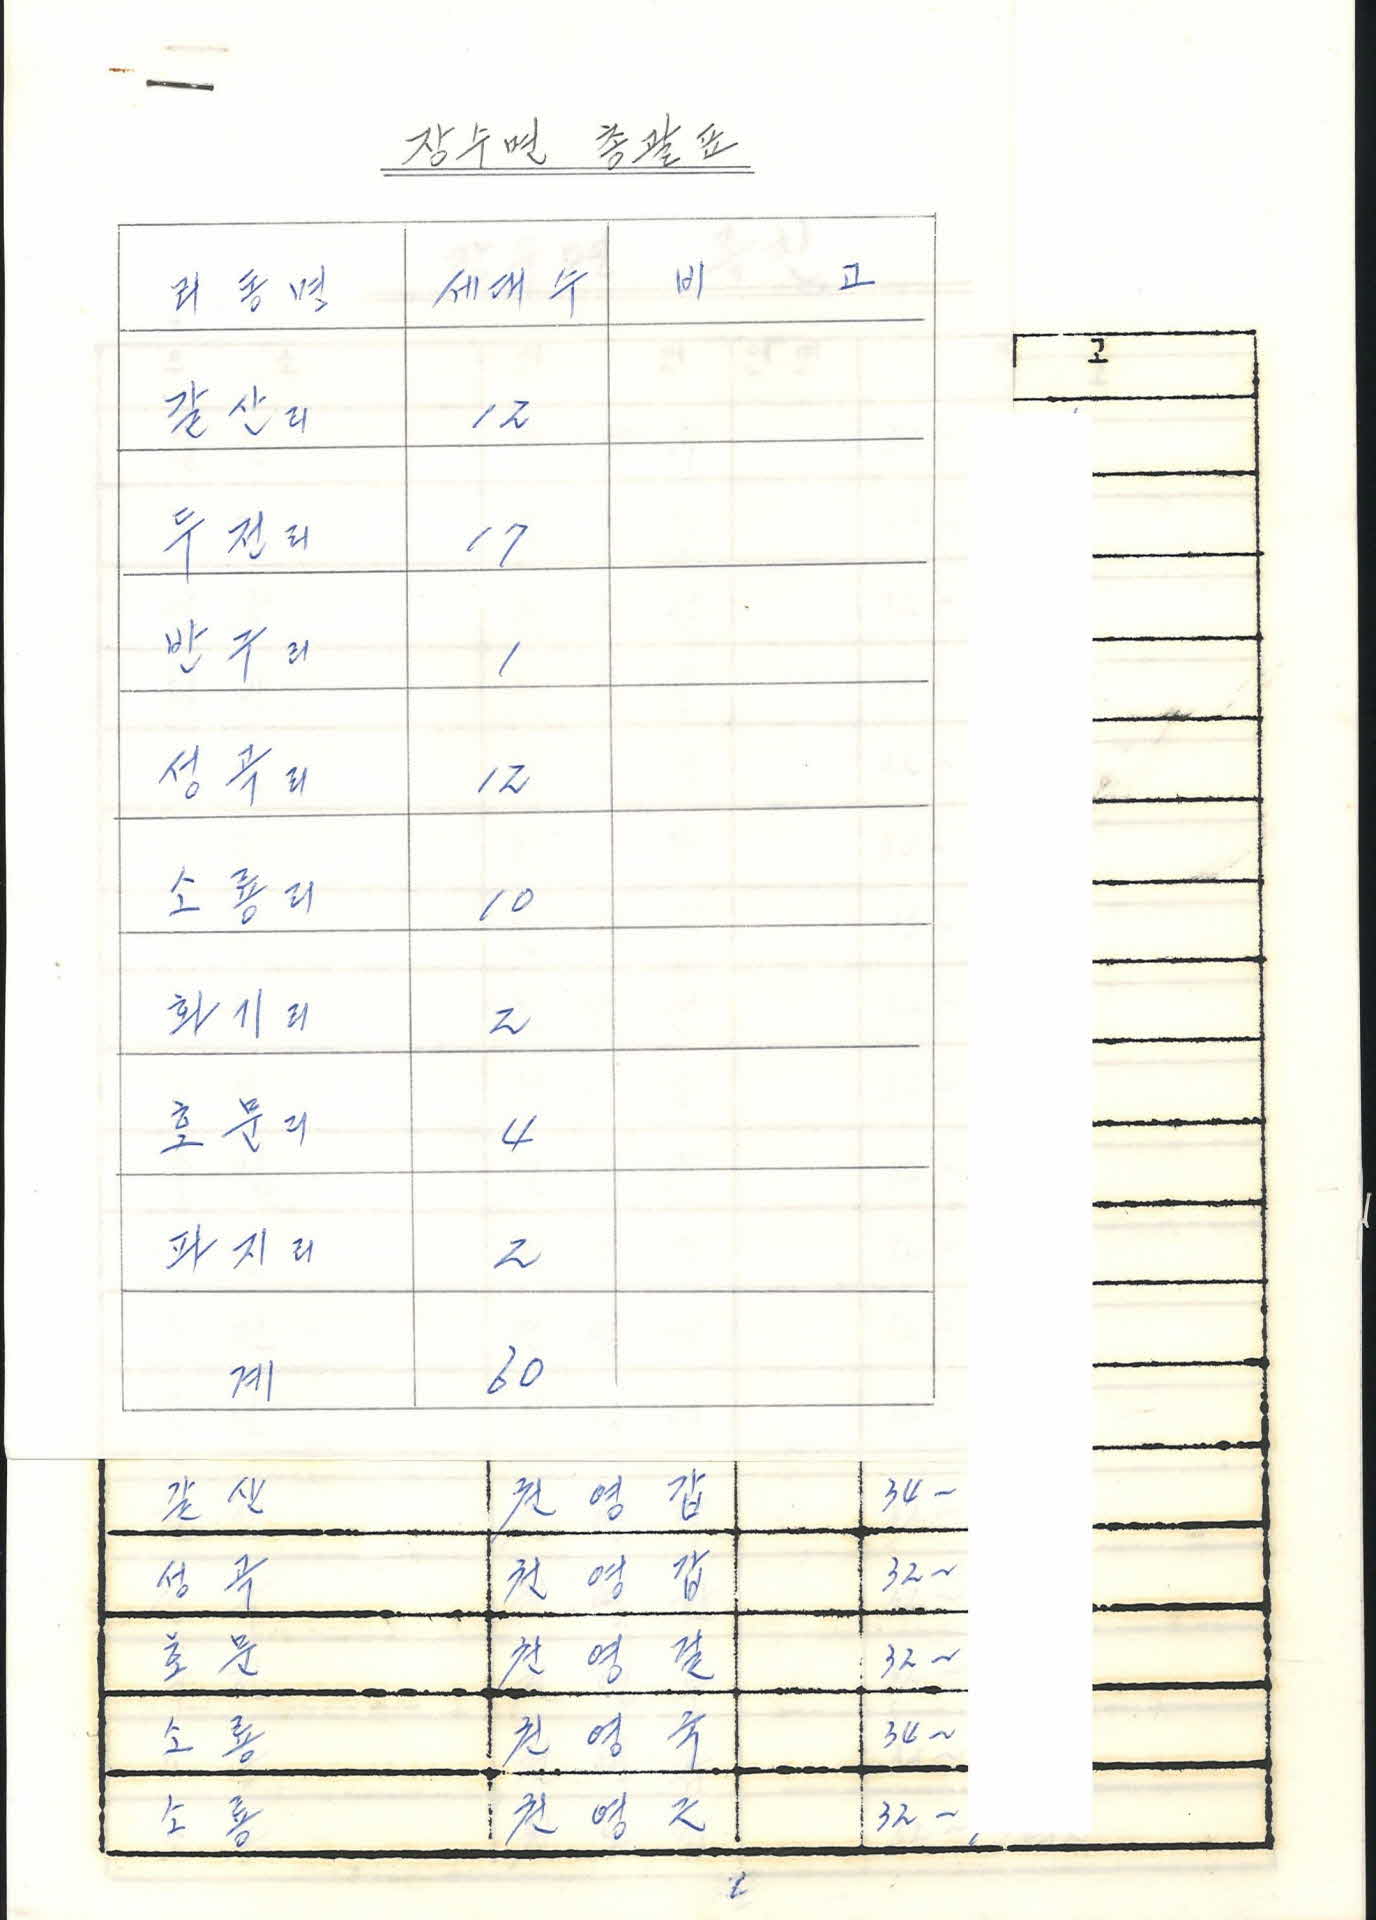 장수면 총괄표
리동명 세대수 비 고
갈산리 12
두전리 17
반구리 1
성곡리 12
소룡리 10
화기리 2
호문리 4
파지리 2
계 60
고
갈산 권영갑 34~
성곡 권영갑 32~
호문 권영갈 32~
소룡 권영국 34~
소룡 권영 32~